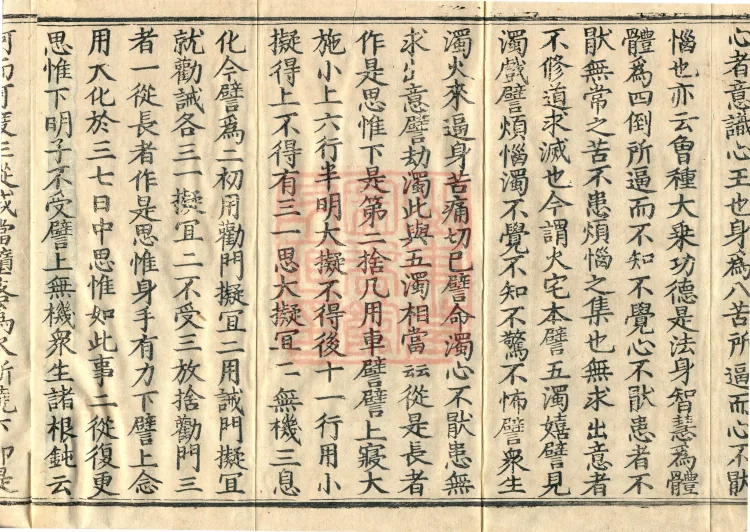 心者意識心王也身為八苦所逼而心不猒
惱也亦云曾種大乗功德是法身智慧為體
體為四倒所逼而不知不覺心不猒患者不
猒無常之苦不患煩惱之集也無求出意者
不修道求滅也今謂火宅本譬五濁嬉譬見
濁戲譬煩惱濁不覺不知不驚不怖譬衆生
濁火来逼身苦痛切已譬命濁心不猒患無
求出意譬劫濁此與五濁相當云云從是長者
作是思惟下是第二捨几用車譬譬上寢大
施小上六行半明大擬不得後十一行用小
擬得上不得有三一思大擬冝二無機三息
化今譬為二初用勸門擬冝二用誡門擬冝
就勸誡各三一擬冝二不受三放捨勸門三
者一從長者作是思惟身手有力下譬上念
用大化於三七日中思惟如此事二從復更
思惟下明子不受譬上無機衆生諸根鈍云